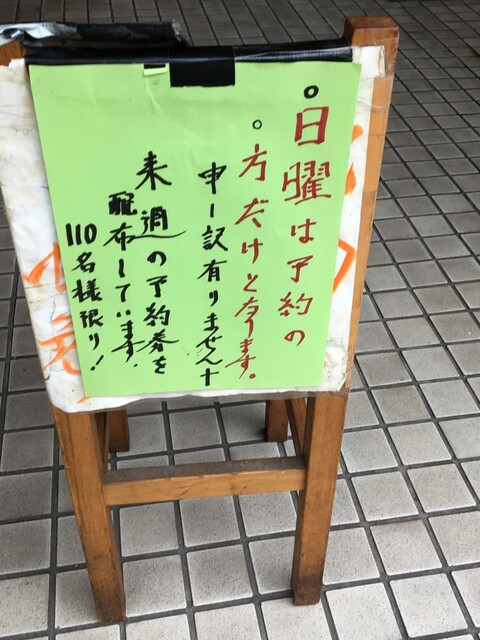 。日曜は予約の
。方だけとなります。
申し訳有りません十
来週の予約券を
配布しています。
110名様限り!